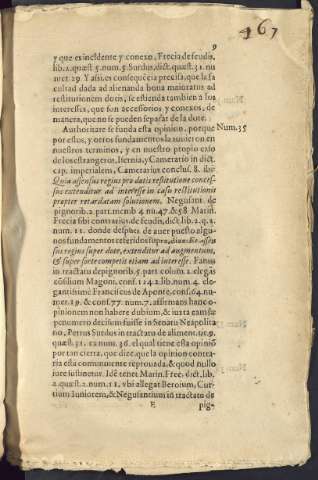 167
9
y que es incidente y conexo, Frecia de feudis,
lib. 2. quæst. 5. num. 5. Surdus, dict. quæst. 31. nu
mer. 29. Y assi es consequēcia precisa, que la fa
cultad dada ad alienanda bona maioratus ad
restitutionem dotis, se estienda tambien a los
interesses, que son accessorios y conexos, de
manera, que no se pueden separar de la dote.
Authoritate se funda esta opinion, porque Num. 35
por estos, y otros fundamentos la tuuieron en
nuestros terminos, y en nuestro proprio caso
de los estrangeros, Isernia, y Camerario in dict.
cap. imperialem, Camerarius conclus. 8. ibi:
Quia assensus regius pro dotis restitutione conces-
sus extenditur ad interesse in casu restitutionis
propter retardatam solutionem. Negusant. de
pignorib. 2. part. mēmb. 4. nu. 47. & 58. Marin.
Frecia sibi contrarius, de feudis, dict. lib. 2. q. 2.
num. 11. donde despues de auer puesto algu-
nos fundamentos referidos supra, dixit: Et assen
sus regius super dote, extenditur ad augmentum,
& super forte competit etiam ad interesse. Fanus
in tractatu de pignorib. 5. part. colum. 2. elegās
cōsilium Magoni, cons. 114. 2. lib. num. 4. ele-
gantissimè Franciscus de Aponte, cons. 64. nu-
mer. 19. & cons. 77. num. 7. affirmans hanc o-
pinionem non habere dubium, & iuxta eam sæ
penumero decisum fuisse in Senatu Neapolita
no, Petrus Surdus in tractatu de aliment. tit. 9.
quæst. 31. ex num. 36. el qual tiene esta opiniō
por tan cierta, que dize, que la opinion contra-
ria esta comunmente reprouada, & quod nullo
iure sustinetur. Idē tenet Marin. Frec. dict. lib.
2. quæst. 2. num. 11. vbi allegat Beroium, Cur-
tium Iuniorem, & Negusantium in tractatu de
E pig-